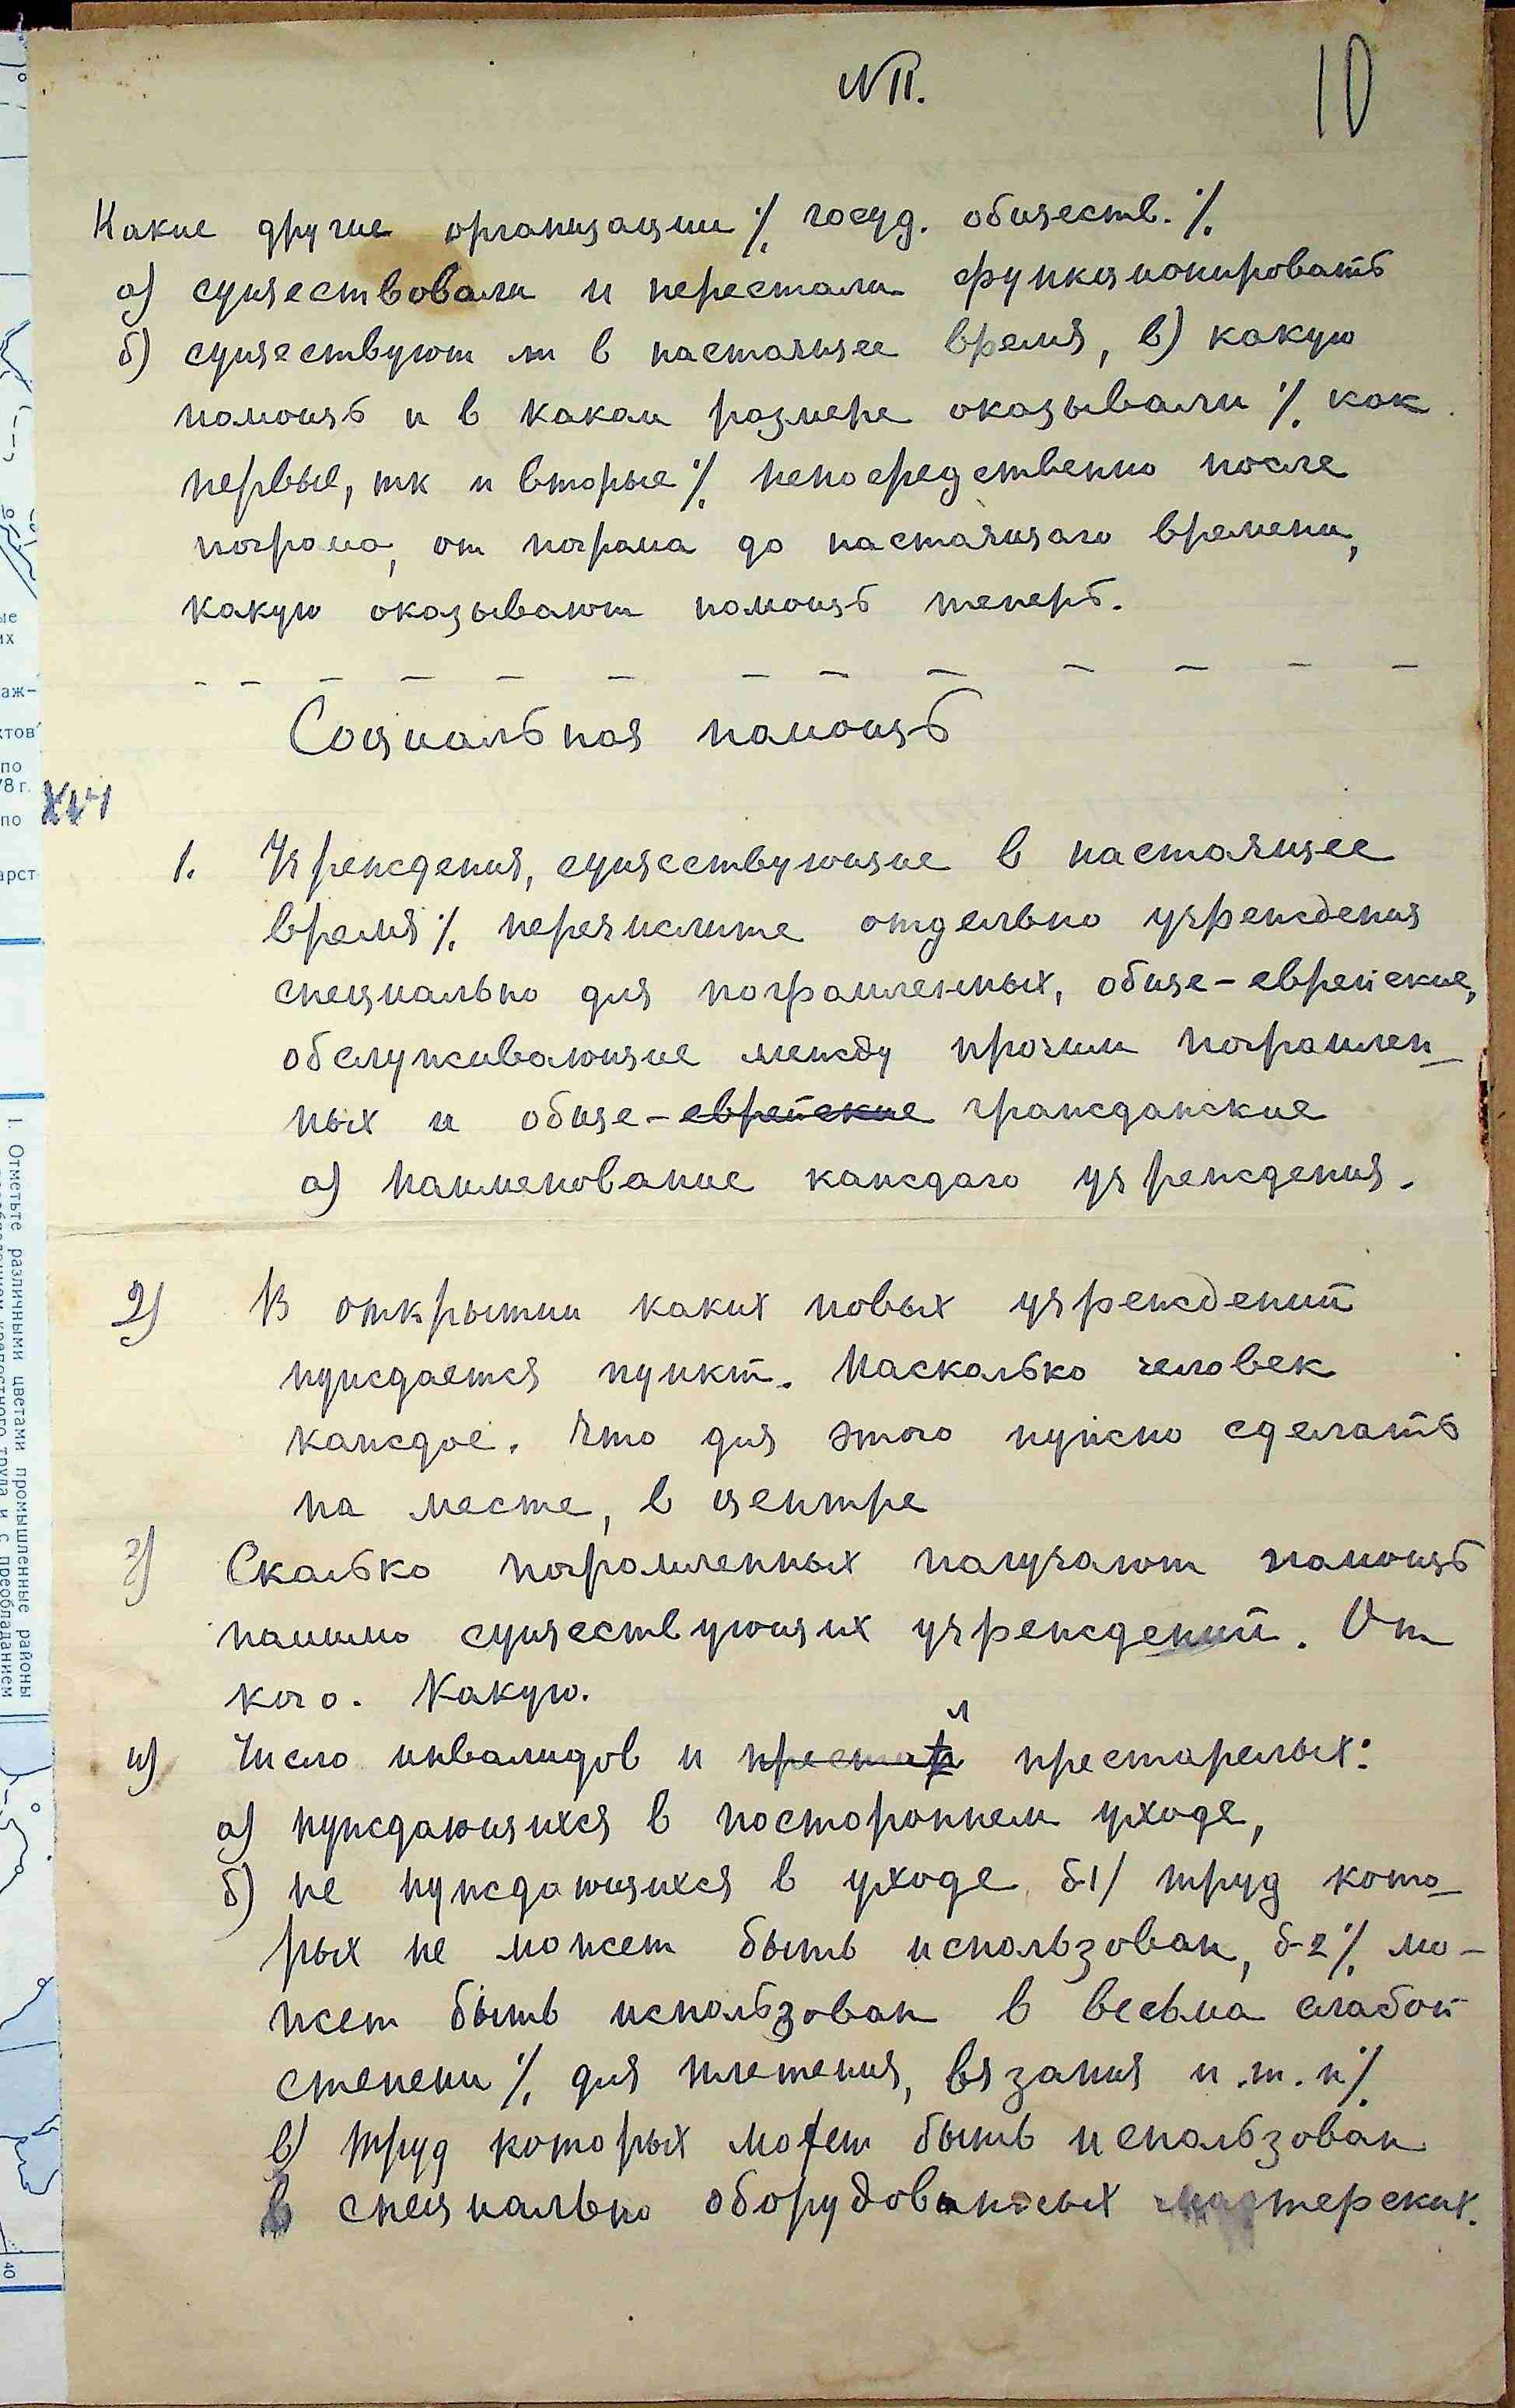 NП.
10
Какие другие организации /. госуд. обществ. /.
а) существовали и перестали функционировать
б) существуют ли в настоящее время, в) какую
помощь и в каком размере оказывали /. как
первые, тк и вторые /. непосредственно после
погрома, от погрома до настоящаго времени,
какую оказывают помощь теперь.
Социальная помощь
XVI
1. Учреждения, существующие в настоящее
время /. перечислите отдельно учреждения
специально для погромленных, обще-еврейские,
обслуживающие между прочим погромлен-
ных и обще-еврейские гражданские
а) наименование каждаго учреждения.
2) В открытии каких новых учреждений
нуждается пункт. Насколько человек
каждое. Что для этого нужно сделать
на месте, в центре
3) Сколько погромленных получают помощь
помимо существующих учреждений. От
кого. Какую.
4) Число инвалидов и престарелых:
а) нуждающихся в постороннем уходе,
б) не нуждающихся в уходе, б1/ труд кото-
рых не может быть использован, б-2 /. мо-
жет быть использован в весьма слабой
степени /. для плетения, вязания и.т.п /.
в) труд которых может быть использован
в специально оборудованных мастерских.
ые
их
аж-
ктов
по
78 г.
по
арст
1. Отметьте различными цветами промышленные районы
крепостного труда и с преобладанием
40